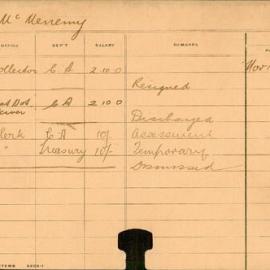 Mc Menemy
OFFICE DEP'T SALARY REMARKS
Collector C A 2.10.0
Resigned
C A 2.10.0
Discharged
Clerk C A 10/- Assessment
" Treasury 10/- Temporary
Dismissed